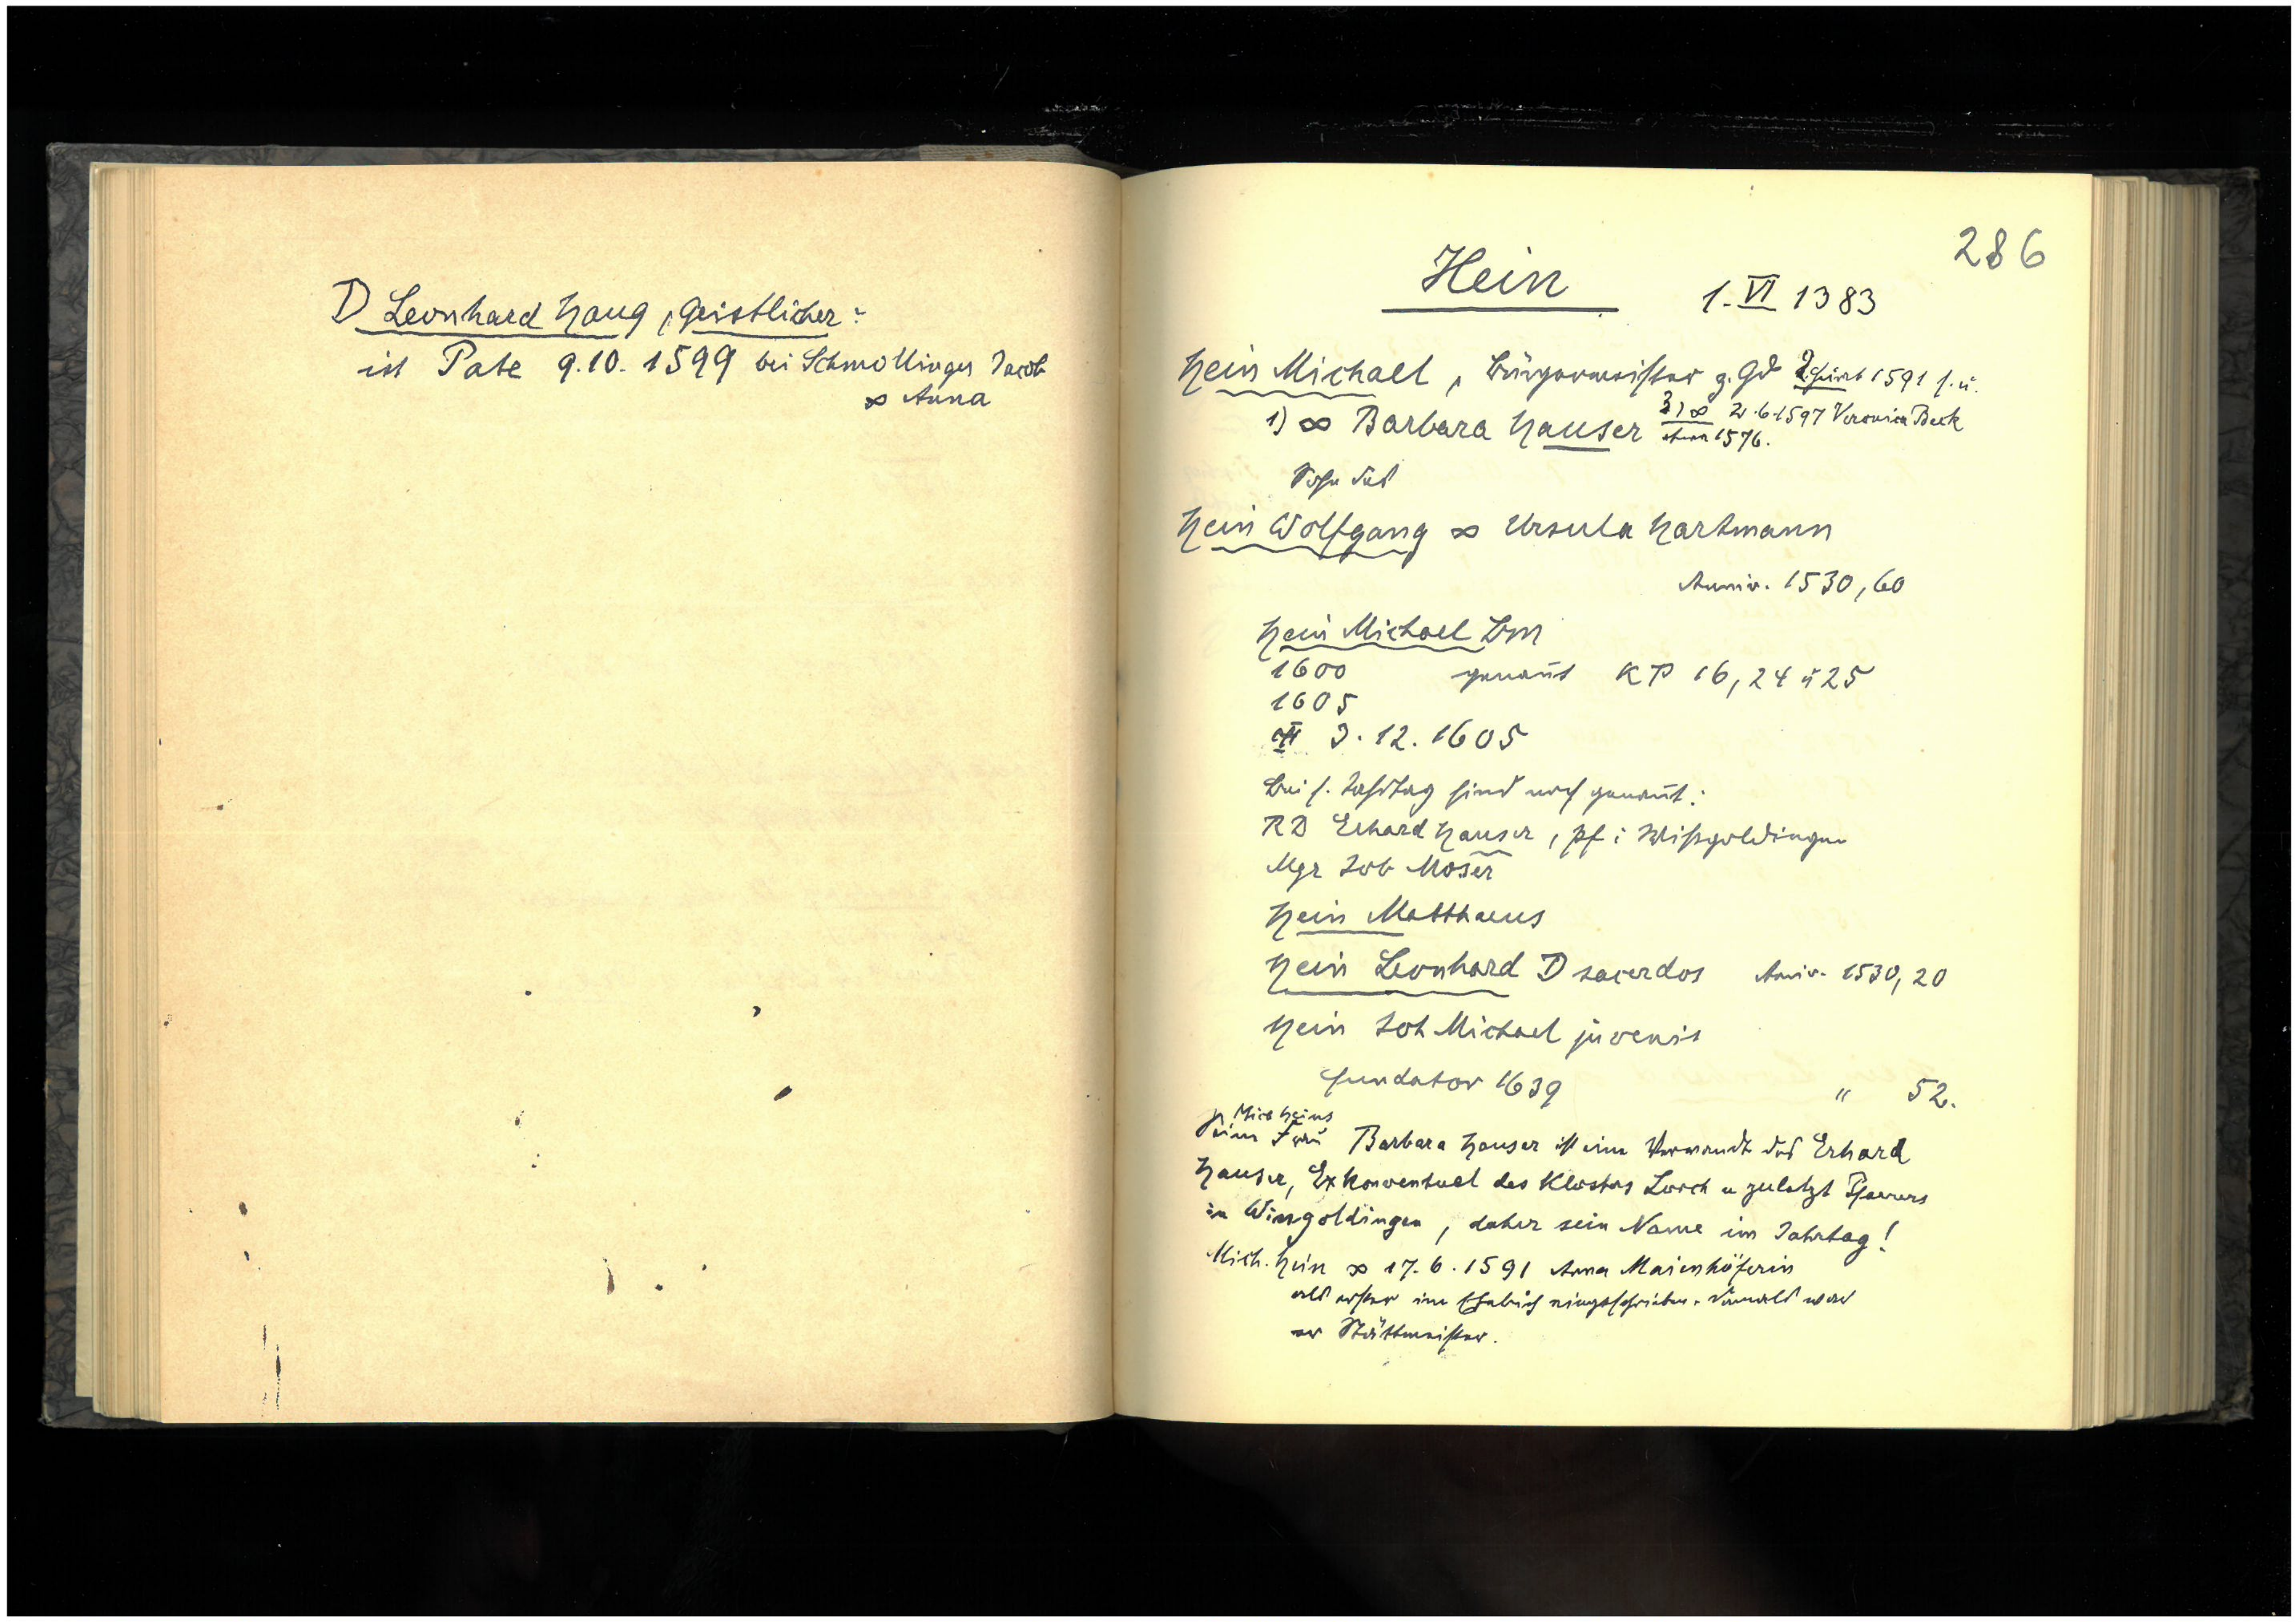 D Leonhard Haug, Geistlicher:
ist Pate 9.10. 1599 bei Schmollinger Jacob
∞ Anna
286
Hein 1. VI 1383
Hein Michael, Bürgermeister z. Gd 2. Heirat 1591 s. u.
1) ∞ Barbara Hauser 3) ∞ 2.6.1597 Veronica Beck
etwa 1576.
Sohn des
Hein Wolfgang ∞ Ursula Hartmann
Anniv. 1530, 60
Hein Michael Bm
1600 genannt KP 16, 24 u 25
1605
3.12.1605
Bei s. Jahrtag sind noch genannt:
RD Erhard Hauser, Pf i Wißgoldingen
Mgr Job Moser
Hein Matthaeus
Hein Leonhard D sacerdos Aniv. 1530, 20
Hein Joh Michael juvenis
fundator 1639 " 52.
Mich Heins
Seine Frau Barbara Hauser ist eine Verwandte des Erhard
Hauser, Exkonventual des Klosters Lorch u zuletzt Pfarrers
in Wissgoldingen, daher sein Name im Jahrtag!
Mich. Hein ∞ 17.6.1591 Anna Maienhöferin
als erster im Ehebuch eingeschrieben. Damals war
er Stättmeister.